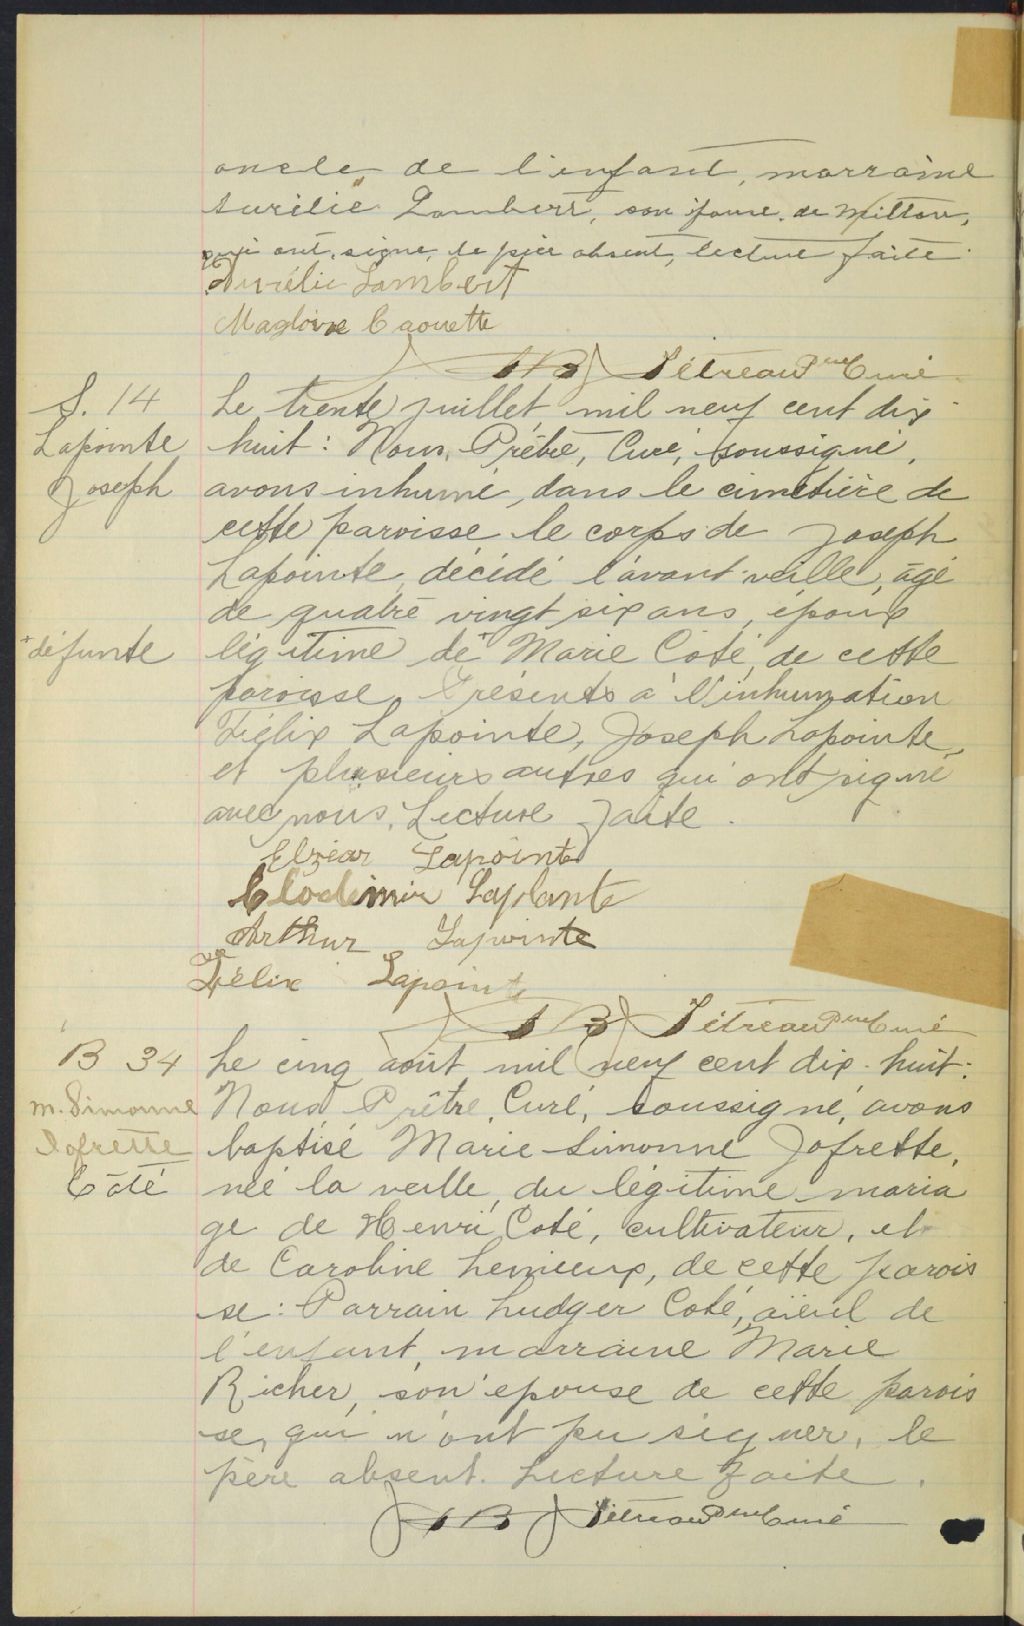 oncle de l'enfant, marraine
Aurélie Lambert, son épouse, de Milton,
qui ont signé, le père absent, lecture faite.
Aurélie Lambert
Magloire Caouette
JB Tétreau Ptre Curé
S. 14
Lapointe
Joseph
Le trente juillet mil neuf cent dix
huit: Nous, Prêtre, Curé, soussigné,
avons inhumé, dans le cimetière de
cette paroisse le corps de Joseph
Lapointe, décédé l'avant-veille, âgé
de quatre vingt six ans, époux
+ défunte
légitime de + Marie Coté, de cette
paroisse. Présents à l'inhumation
Félix Lapointe, Joseph Lapointe,
et plusieurs autres qui ont signé
avec nous. Lecture faite.
Elzéar Lapointe
Clodimir Laplante
Arthur Lapointe
Félix Lapointe
JB Tétreau Ptre Curé
B 34
m. Simonne
Jofrette
Côté
Le cinq août mil neuf cent dix-huit:
Nous Prêtre, Curé, soussigné, avons
baptisé Marie-Simonne Jofrette,
née la veille, du légitime maria
ge de Henri Coté, cultivateur, et
de Caroline Lemieux, de cette parois
se: Parrain Ludger Coté, aïeul de
l'enfant, marraine Marie
Richer, son épouse de cette parois
se, qui n'ont pu signer, le
père absent. Lecture faite.
JB Tétreau Ptre Curé